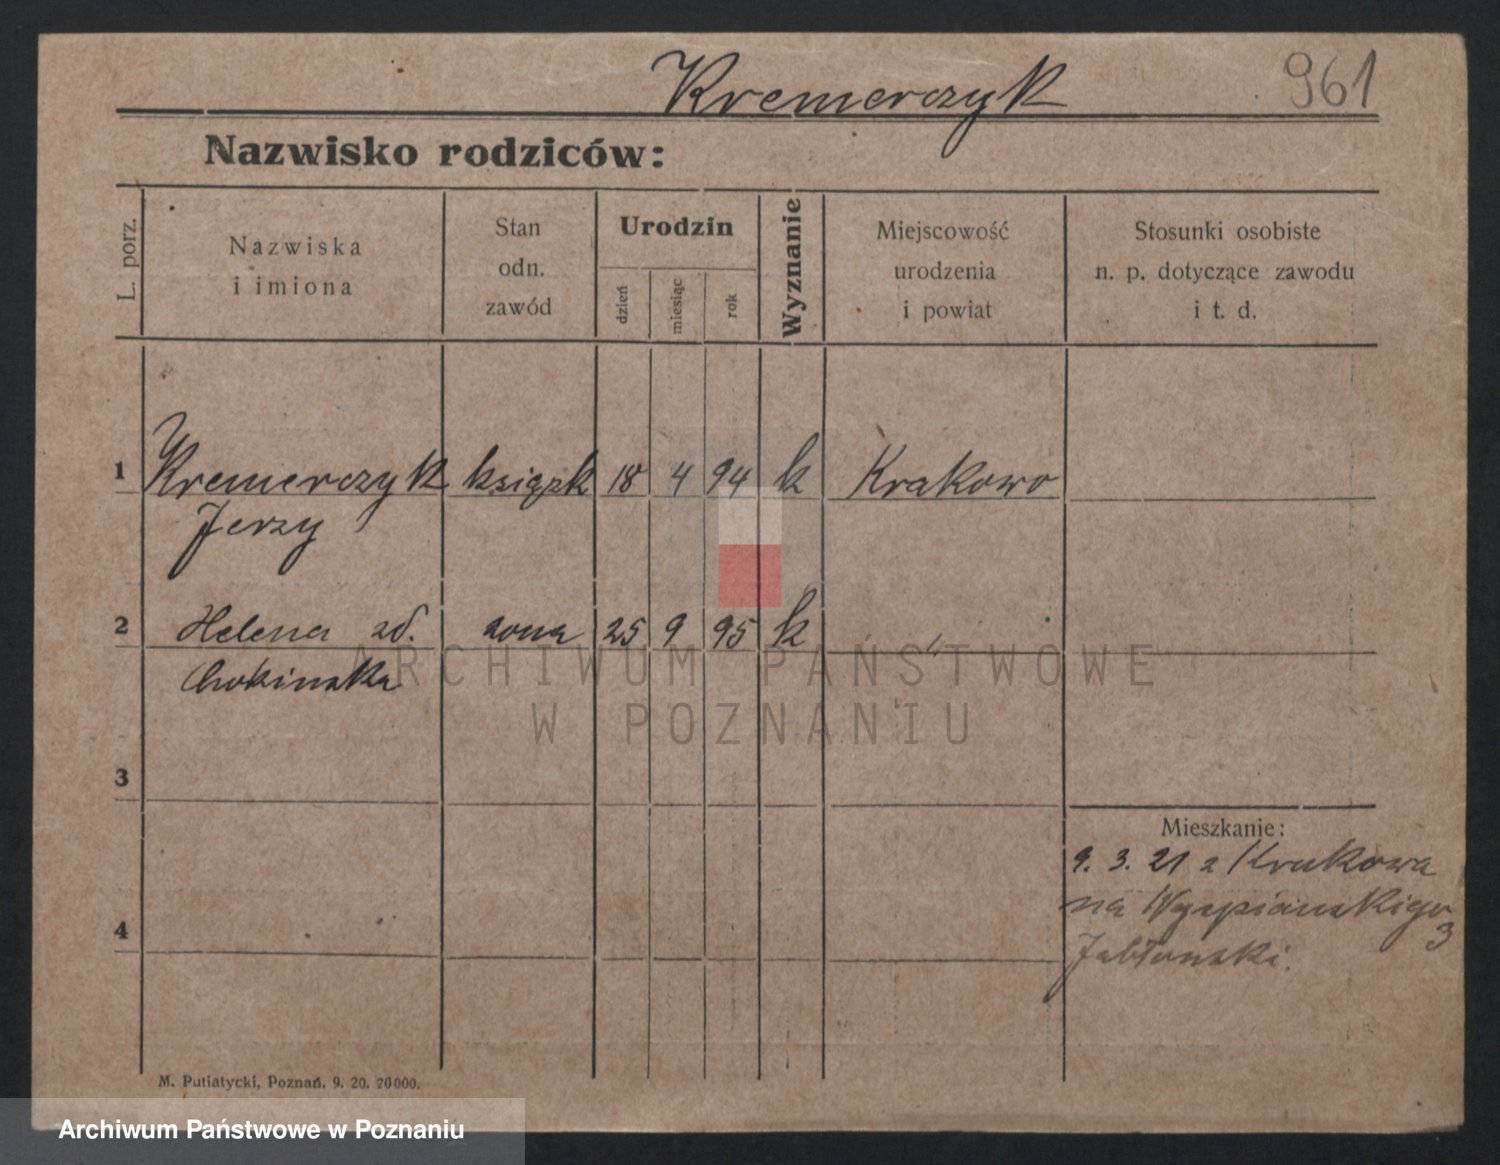 Kremerczyk
961
Nazwisko rodziców:
L. porz.
Nazwiska
i imiona
Stan
odn.
zawód
Urodzin
dzień
miesiąc
rok
Wyznanie
Miejscowość
urodzenia
i powiat
Stosunki osobiste
n. p. dotyczące zawodu
i t. d.
1 Kremerczyk książk 18 4 94 k Krakowo
Jerzy
2 Helena zd. żona 25 9 95 k "
3
Mieszkanie:
9. 3. 21 z Krakowa
na Wyspianskigo
3
4
Jabłonski.
M. Putiatycki, Poznań. 9. 20. 20000.
ARCHIWUM PAŃSTWOWE
W POZNANIU
Archiwum Państwowe w Poznaniu